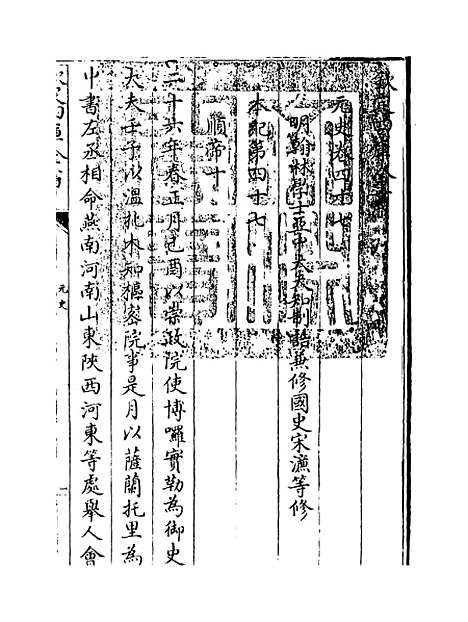 欽定四庫全書
元史卷四十七
明翰林學士亞中大夫知制誥兼修國史宋濂等修
本紀第四十七
順帝十
二十六年春正月己酉以崇政院使博囉實勒為御史
大夫壬子以溫挑木知樞密院事是月以薩蘭托里為
中書左丞相命燕南河南山東陝西河東等處舉人會
欽定四庫全書
元史
一